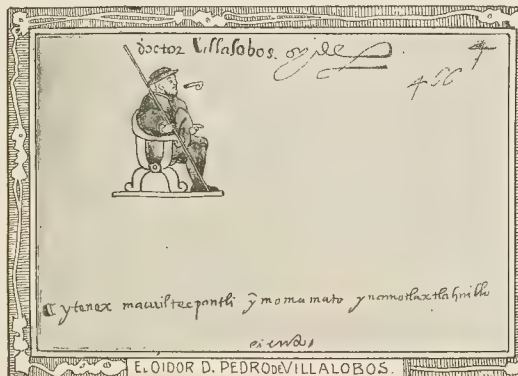 doctor Villalobos. oydor
ytenex macuiltecpantli ỹ momamato ynamotlaxtlahuilli
EL OIDOR D. PEDRO DE VILLALOBOS.